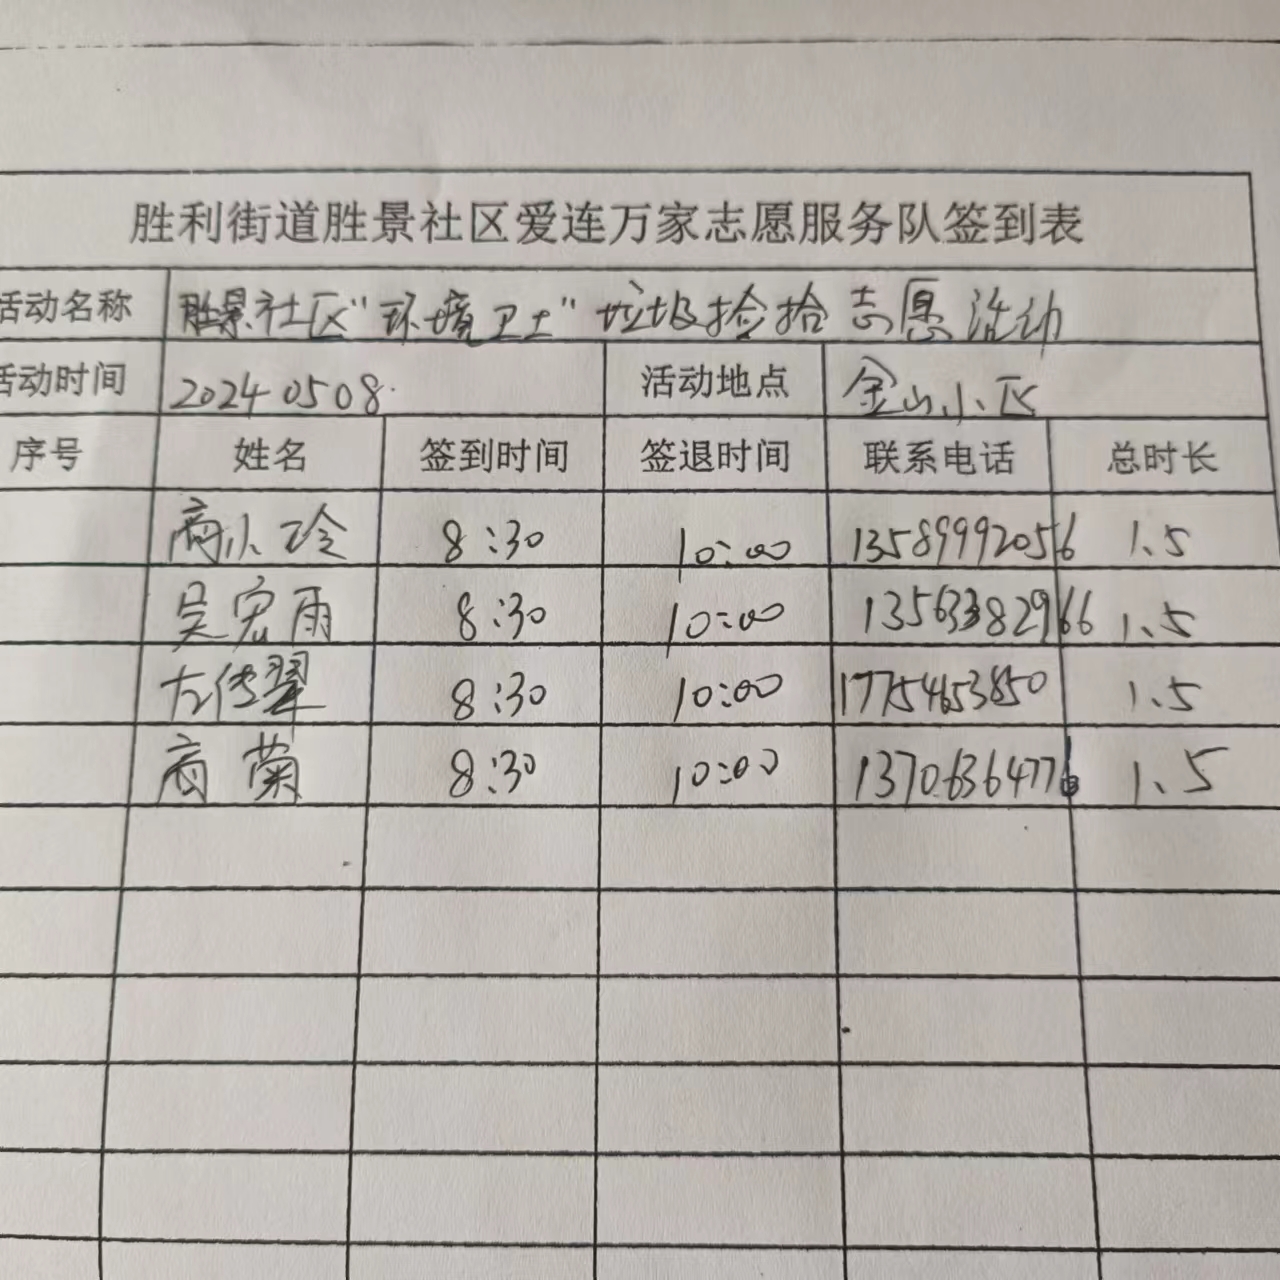 胜利街道胜景社区爱连万家志愿服务队签到表
活动名称 胜景社区"环境卫士"垃圾捡拾志愿活动
活动时间 20240508. 活动地点 金山小区
序号 姓名 签到时间 签退时间 联系电话 总时长
商小玲 8:30 10:00 13589992056 1.5
吴宏雨 8:30 10:00 13563382966 1.5
左传翠 8:30 10:00 17754653850 1.5
商菊 8:30 10:00 13706364776 1.5